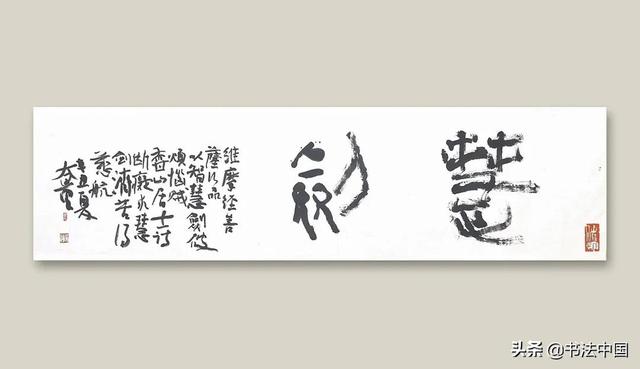 慧劍
維摩經菩
薩行品
以智慧劍破
煩惱賊
香山居士詩
斷癡求慧
劍濟苦得
慈航
辛丑夏
头条 @书法中国